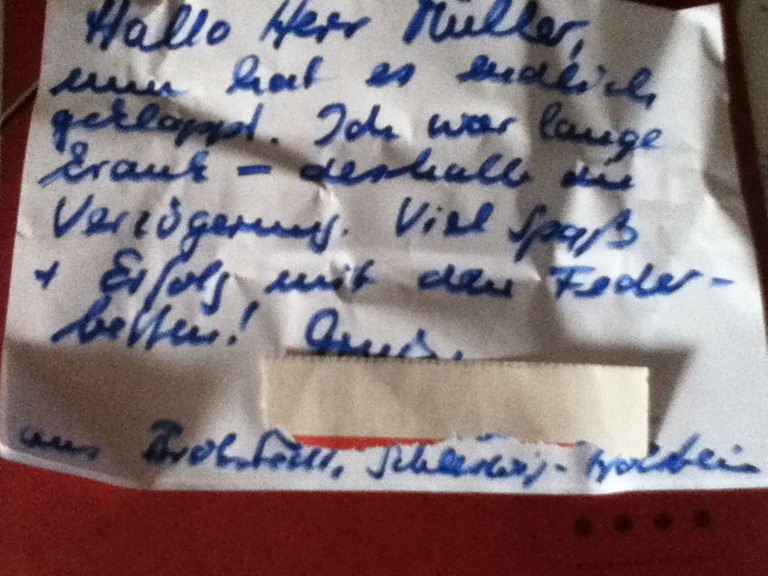 Hallo Herr Müller,
nun hat es endlich
geklappt. Ich war lange
krank - deshalb die
Verzögerung. Viel Spaß
+ Erfolg mit den Feder-
betten!
aus Schleswig-Holstein